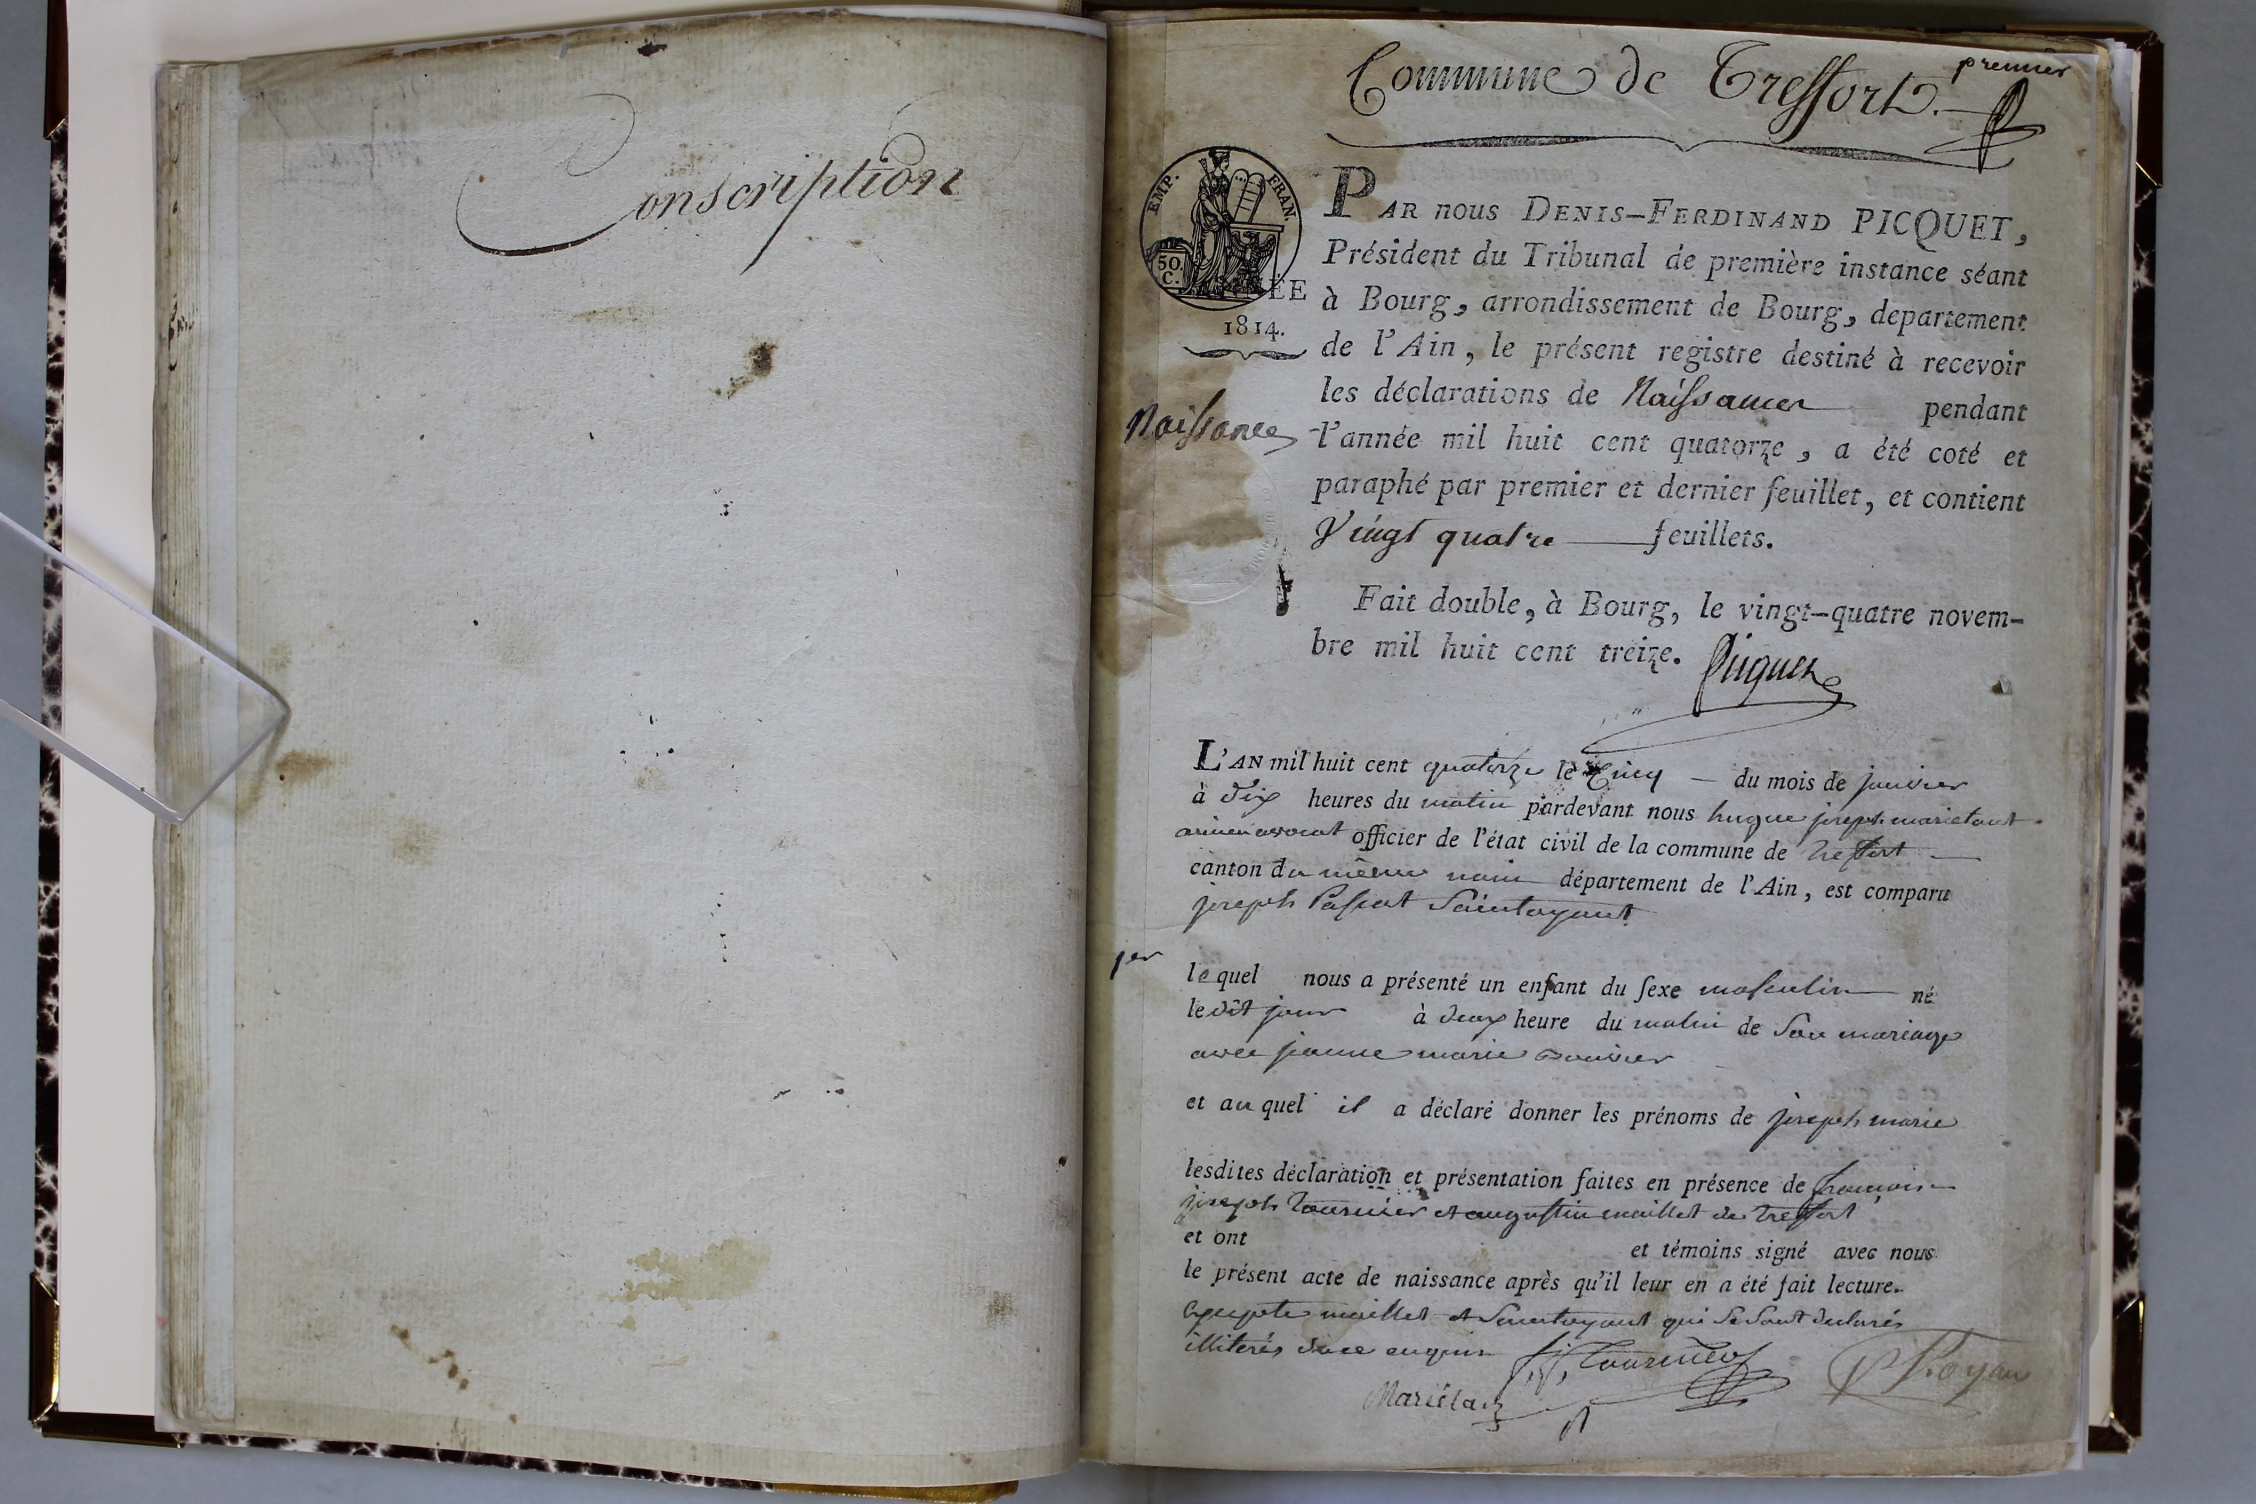 Conscription
premier
Commune de Treffort.
EMP. FRAN.
50. C.
ÉE
1814.
PAR nous DENIS-FERDINAND PICQUET,
Président du Tribunal de première instance séant
à Bourg, arrondissement de Bourg, departement
de l'Ain, le présent registre destiné à recevoir
les déclarations de Naissances pendant
Naissances
l'année mil huit cent quatorze, a été coté et
paraphé par premier et dernier feuillet, et contient
Vingt quatre feuillets.
Fait double, à Bourg, le vingt-quatre novem-
bre mil huit cent treize. Picquet
L'AN mil huit cent quatorze le Cinq du mois de janvier
à dix heures du matin pardevant nous hugue joseph marie
officier de l'état civil de la commune de treffort
canton du même nom département de l'Ain, est comparu
joseph Saintoyant
1er
lequel nous a présenté un enfant du sexe masculin né
ledit jour à deux heure du matin de Son mariage
avec jeanne marie
et auquel il a déclaré donner les prénoms de joseph marie
lesdites déclaration et présentation faites en présence de françois
joseph tournier et augustin maillet de treffort
et ont et témoins signé avec nous
le présent acte de naissance après qu'il leur en a été fait lecture.
maillet et Saintoyant qui Se Sont declarés
illiterés de ce enquis f. j. Tournier